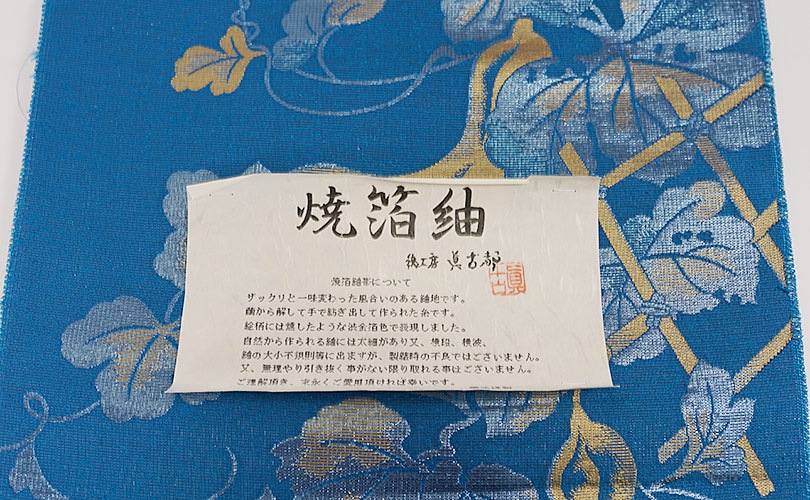 焼箔紬
眞古都
焼箔紬帯について
ザックリと一味変わった風合いのある紬地です。
繭から解して手で紡ぎ出して作られた糸です。
絵柄には燻したような渋金箔色で表現しました。
自然から作られる紬には太細があり又、横段、横波、
紬の大小不規則等に出ますが、製織時の不良ではございません。
又、無理やり引き抜く事がない限り取れる事はございません。
ご理解頂き、末永くご愛用頂ければ幸いです。